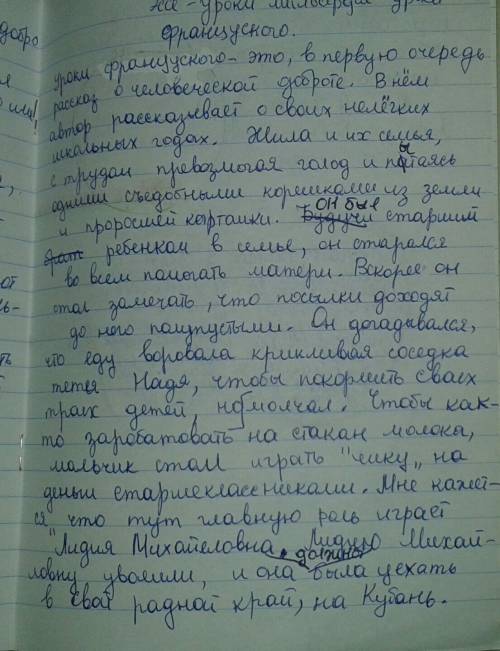 все - уроки милосердия уроки
французского.
Уроки французского - это, в первую очередь
рассказ о человеческой доброте. В нём
автор рассказывает о своих нелёгких
школьных годах. Жила и их семья,
с трудом превозмогая голод и пытаясь
одними съедобными корешками из земли
и проросшей картошки. Он был старшим
ребёнком в семье, он старался
во всем помогать матери. Вскорее он
стал замечать, что посылки доходят
до него полупустыми. Он догадывался,
что еду воровала крикливая соседка
тетея Надя, чтобы покормить сваех
траих детей, но молчал. Чтобы как-
то заработовать на стакан молока,
мальчик стал играть "чику" на
деньги старшеклассниками. Мне кажет-
ся что тут главную роль играет
"Лидия Михайеловна. Лидию Михай-
ловну уволили, и она должна была уехать
в свой радной край, на Кубань.
добро
или!